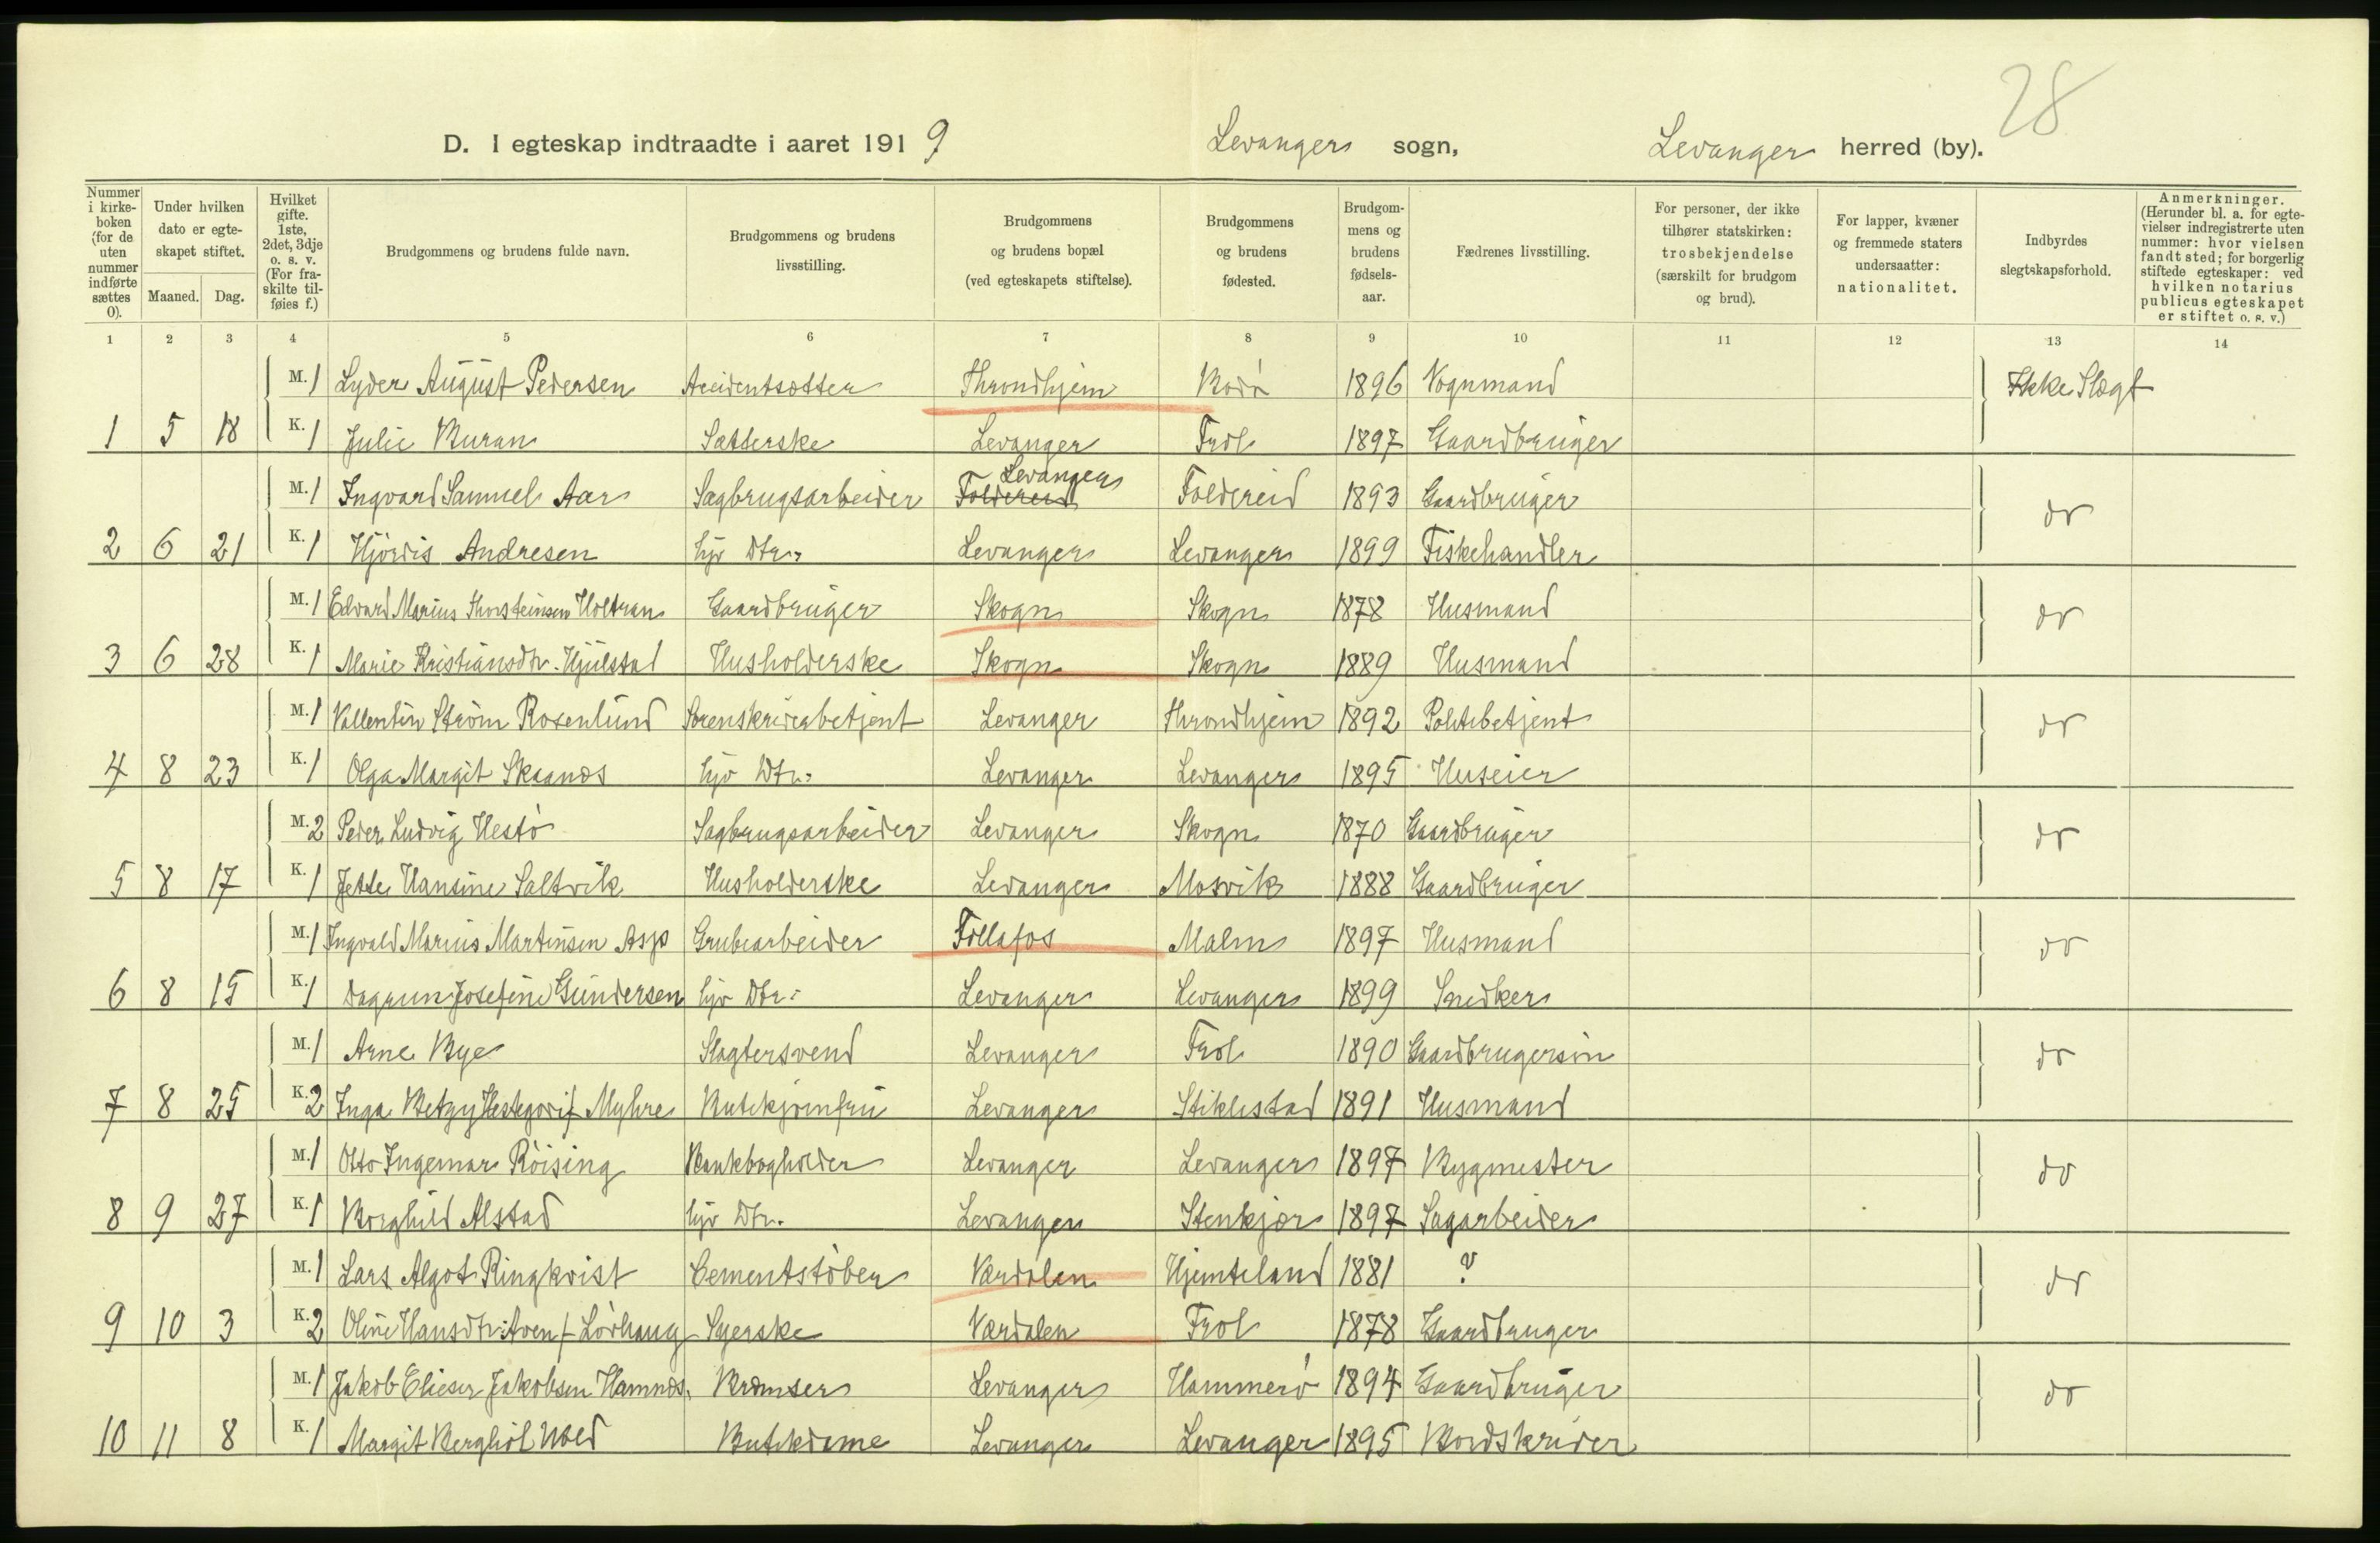 28
D. I egteskap indtraadte i aaret 1919 Levanger sogn, Levanger herred (by).
Nummer i kirkeboken (for de uten nummer indførte sættes 0).
Under hvilken dato er egteskapet stiftet.
Maaned. Dag.
Hvilket gifte. 1ste, 2det, 3dje o. s. v. (For fraskilte tilføies f.)
Brudgommens og brudens fulde navn.
Brudgommens og brudens livsstilling.
Brudgommens og brudens bopæl (ved egteskapets stiftelse).
Brudgommens og brudens fødested.
Brudgommens og brudens fødselsaar.
Fædrenes livsstilling.
For personer, der ikke tilhører statskirken: trosbekjendelse (særskilt for brudgom og brud).
For lapper, kvæner og fremmede staters undersaatter: nationalitet.
Indbyrdes slegtskapsforhold.
Anmerkninger. (Herunder bl. a. for egtevielser indregistrerte uten nummer: hvor vielsen fandt sted; for borgerlig stiftede egteskaper: ved hvilken notarius publicus egteskapet er stiftet o. s. v.)
1 2 3 4 5 6 7 8 9 10 11 12 13 14
M. 1 Lyder August Pedersen Accidentsætter Throndhjem Bodø 1896 Vognmand Ikke Slægt
1 5 18 K. 1 Julie Buran Sætterske Levanger Frol 1897 Gaardbruger
M. 1 Ingvard Samuel Aar Sagbrugsarbeider Foldereid Levanger Foldereid 1893 Gaardbruger do
2 6 21 K. 1 Hjørdis Andresen hjv Dtr. Levanger Levanger 1899 Fiskehandler
M. 1 Edvard Marius Thorsteinsen Holtran Gaardbruger Skogn Skogn 1878 Husmand do
3 6 28 K. 1 Marie Kristiansdtr. Hjulstad Husholderske Skogn Skogn 1889 Husmand
M. 1 Vallentin Strøm Rosenlund Sorenskriverbetjent Levanger Throndhjem 1892 Politibetjent do
4 8 23 K. 1 Olga Margit Skaanes hjv Dtr. Levanger Levanger 1895 Huseier
M. 2 Peder Ludvig Hestø Sagbrugsarbeider Levanger Skogn 1870 Gaardbruger do
5 8 17 K. 1 Jette Hansine Saltvik Husholderske Levanger Mosvik 1888 Gaardbruger
M. 1 Ingvald Marius Martinsen Asp Grubearbeider Follafos Malm 1897 Husmand do
6 8 15 K. 1 Dagrun Josefine Gundersen hjv Dtr. Levanger Levanger 1899 Snedker
M. 1 Arne Bye Slagtersvend Levanger Frol 1890 Gaardbrugersøn do
7 8 25 K. 2 Inga Betzy f. Myhre Butikjomfru Levanger Stiklestad 1891 Husmand
M. 1 Otto Ingemar Röising Bankbogholder Levanger Levanger 1897 Bygmester do
8 9 27 K. 1 Borghild Alstad hjv Dtr. Levanger Stenkjær 1897 Sagarbeider
M. 1 Lars Algot Ringkvist Cementstøber Værdalen Hjemteland 1881 ? do
9 10 3 K. 2 Oline Hansdtr. Aven f. Lørhaug Syerske Værdalen Frol 1878 Gaardbruger
M. 1 Jakob Elieser Jakobsen Hamnes Bremser Levanger Hammerø 1894 Gaardbruger do
10 11 8 K. 1 Margit Berghil Wold Butikdame Levanger Levanger 1895 Bordskriver